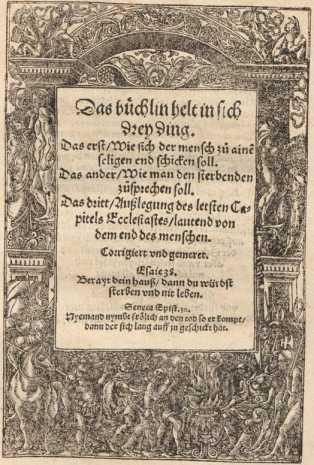 Das büchlin helt in sich
drey ding.
Das erst/Wie sich der mensch zů ainē
seligen end schicken soll.
Das ander/Wie man den sterbenden
zůsprechen soll.
Das dritt/Außlegung des letsten Ca-
pitels Ecclesiastes/lautend von
dem end des menschen.
Corrigiert vnd gemeret.
Esaie 38.
Berayt dein hauß/dann du würdst
sterben vnd nit leben.
Seneca Epist. 30.
Nyemand nymbt frölich an den tod so er kompt/
dann der sich lang auff jn geschickt hat.